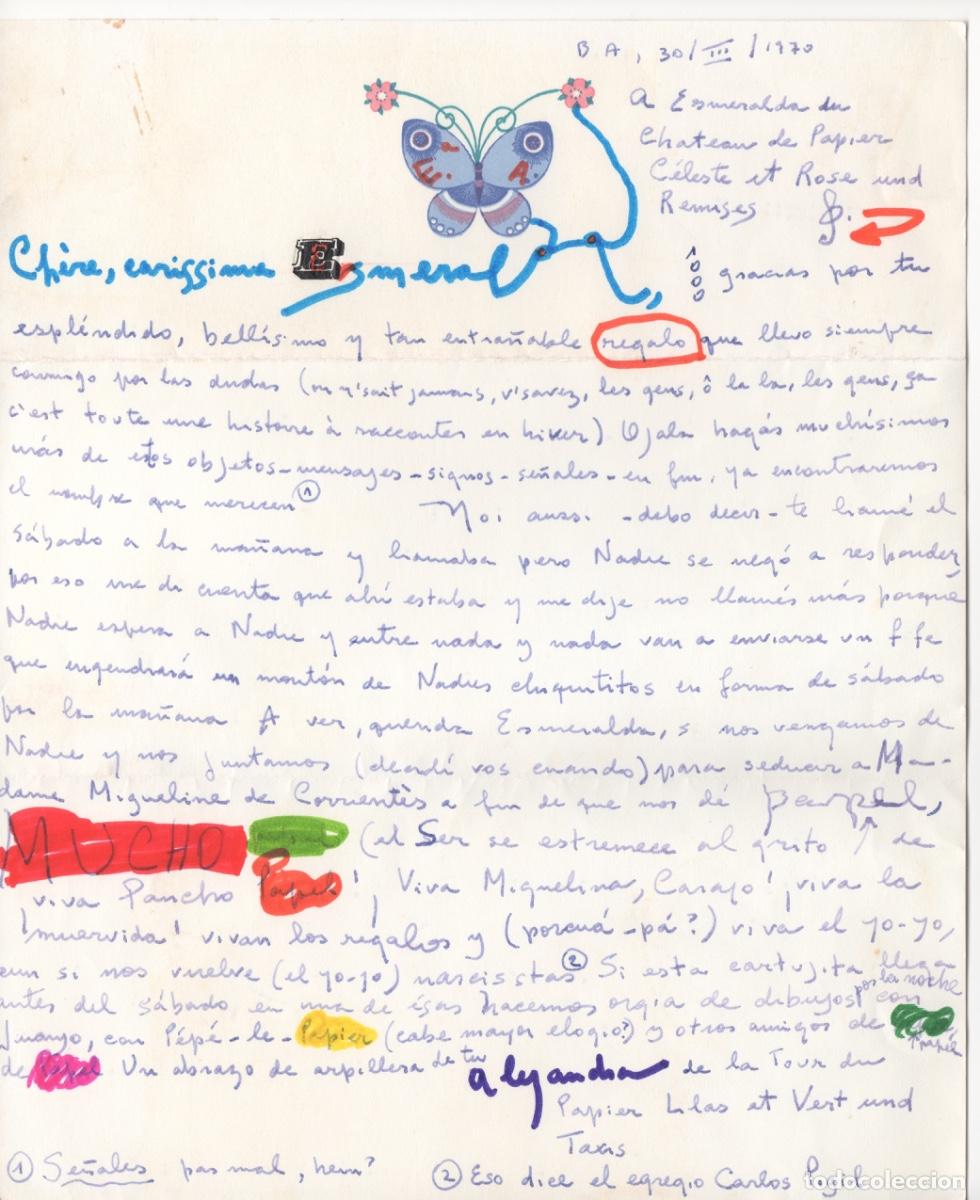 B A, 30/III/1970
A Esmeralda du
Chateau de Papier
Céleste et Rose und
Remises
E. A.
Chère, carissima Esmeral
ô
o
o gracias por tu
espléndido, bellísimo y tan entrañable regalo que llevo siempre
conmigo por las dudas (on n'sait jamais, v'savez, les gens, ô la la, les gens, ça
c'est toute une histoire à raccontes en hiver) Ojala hagás muchísimos
más de estos objetos-mensajes-signos-señales-en fin, ya encontraremos
el nombre que merecen ①
Moi aussi -debo decir- te llamé el
sábado a la mañana y llamaba pero Nadie se negó a responder,
por eso me di cuenta que ahí estaba y me dije no llamés más porque
Nadie espera a Nadie y entre nada y nada van a enviarse un f fe
que engendrará un montón de Nadies chiquititos en forma de sábado
por la mañana A ver, querida Esmeralda, si nos vengamos de
Nadie y nos juntamos (decidí vos cuando) para seducir a Ma-
dame Migueline de Corrientès a fin de que nos dé papel,
MUCHO (el Ser se estremece al grito de
¡viva Pancho Papel! ¡Viva Miguelina, Carajo! ¡viva la
¡muervida! vivan los regalos y (porcuá-pá?) viva el yo-yo,
aun si nos vuelve (el yo-yo) narcisistas ② Si esta cartujita llega
antes del sábado en una de ésas hacemos orgía de dibujos por la noche con
Juanjo, con Pépé-le-Papier (cabe mayor elogio?) y otros amigos de
de Papel Un abrazo de arpillera de tu Alejandra de la Tour du
Papier Lilas et Vert und
Taxis
① Señales pas mal, hein?
② Eso dice el egregio Carlos
todocoleccion